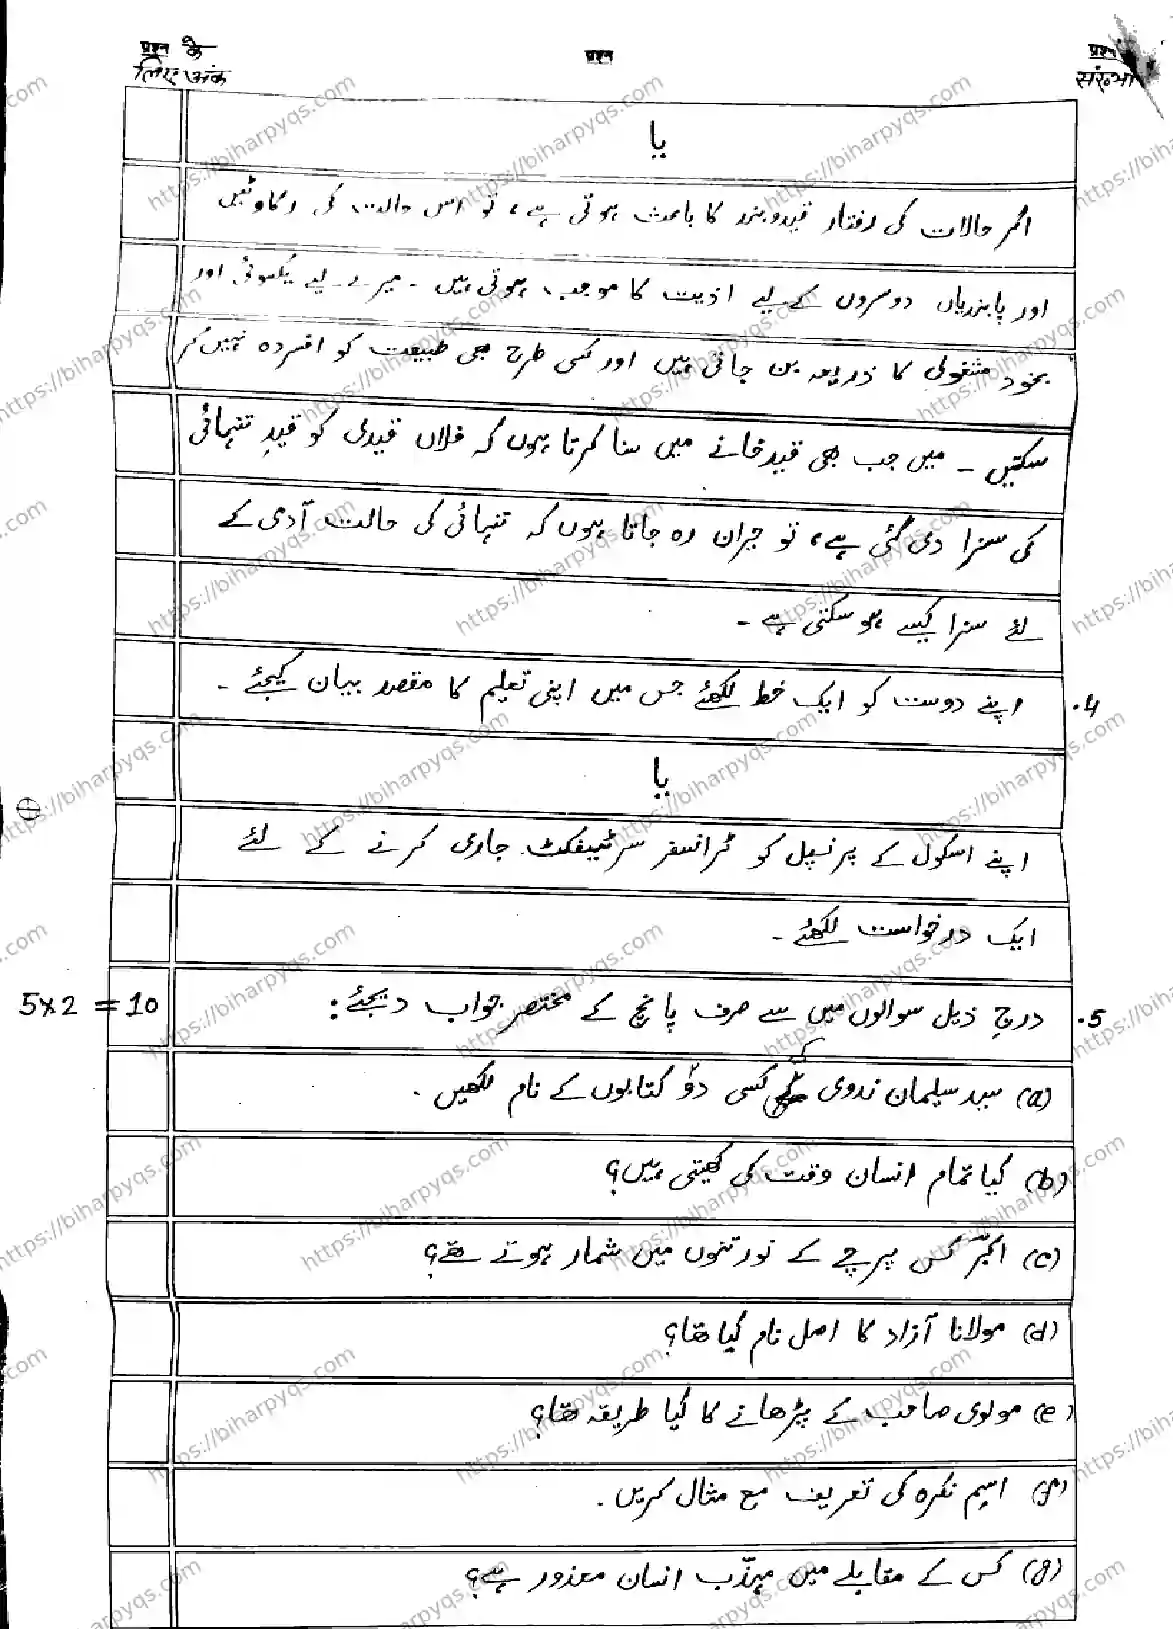 प्रश्न के लिए अंक
प्रश्न
प्रश्न संख्या
یا
اگر حالات کی رفتار قیدوبند کا باعث ہوتی ہے، تو اس حالت کی رکاوٹیں
اور پابندیاں دوسروں کے لیے اذیت کا موجب ہوتی ہیں۔ میرے لیے یکسوئی اور
بخود مشغولی کا ذریعہ بن جاتی ہیں اور کسی طرح بھی طبیعت کو افسردہ نہیں کر
سکتیں۔ میں جب بھی قیدخانے میں سنا کرتا ہوں کہ فلاں قیدی کو قیدِ تنہائی
کی سزا دی گئی ہے، تو حیران رہ جاتا ہوں کہ تنہائی کی حالت آدمی کے
لئے سزا کیسے ہو سکتی ہے۔
4. اپنے دوست کو ایک خط لکھئے جس میں اپنی تعلیم کا مقصد بیان کیجئے۔
یا
اپنے اسکول کے پرنسپل کو ٹرانسفر سرٹیفکٹ جاری کرنے کے لئے
ایک درخواست لکھئے۔
5. درج ذیل سوالوں میں سے صرف پانچ کے مختصر جواب دیجئے: 5x2 = 10
(a) سید سلیمان ندوی کی کسی دو کتابوں کے نام لکھیں۔
(b) کیا تمام انسان وقت کی کھیتی ہیں؟
(c) اکبر کس پرچے کے نورتنوں میں شمار ہوتے تھے؟
(d) مولانا آزاد کا اصل نام کیا تھا؟
(e) مولوی صاحب کے پڑھانے کا کیا طریقہ تھا؟
(f) اسم نکرہ کی تعریف مع مثال کریں۔
(g) کس کے مقابلے میں مہذّب انسان معذور ہے؟
https://biharpyqs.com